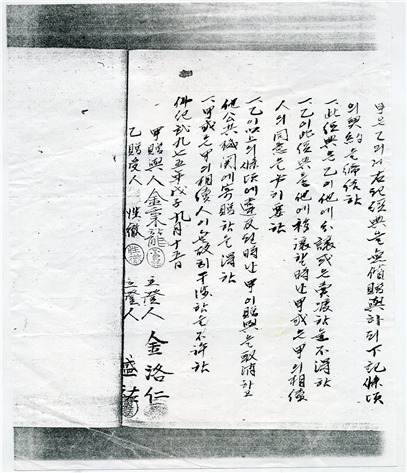 甲은 乙의게 右記 經典을 無償贈與하되 下記 條項
의 契約을 締結함
一, 此 經典은 乙이 他에 分讓 或은 賣渡함을 不得함
一, 乙이 此 經典을 他에 移讓할 時난 甲 或은 甲의 相續
人의 同意를 必要함
一, 乙이 以上의 條項에 違反된 時난 甲이 贈與를 取消하고
他 公共機關에 寄贈함을 得함
一, 甲 或은 甲의 相續人이 無故히 干涉함을 不許함
佛紀 貳九七五年 戊子 九月 十五日
甲 贈與人 金秉龍 立證人 金洛仁
乙 贈受人 性徹 立證人 盛法